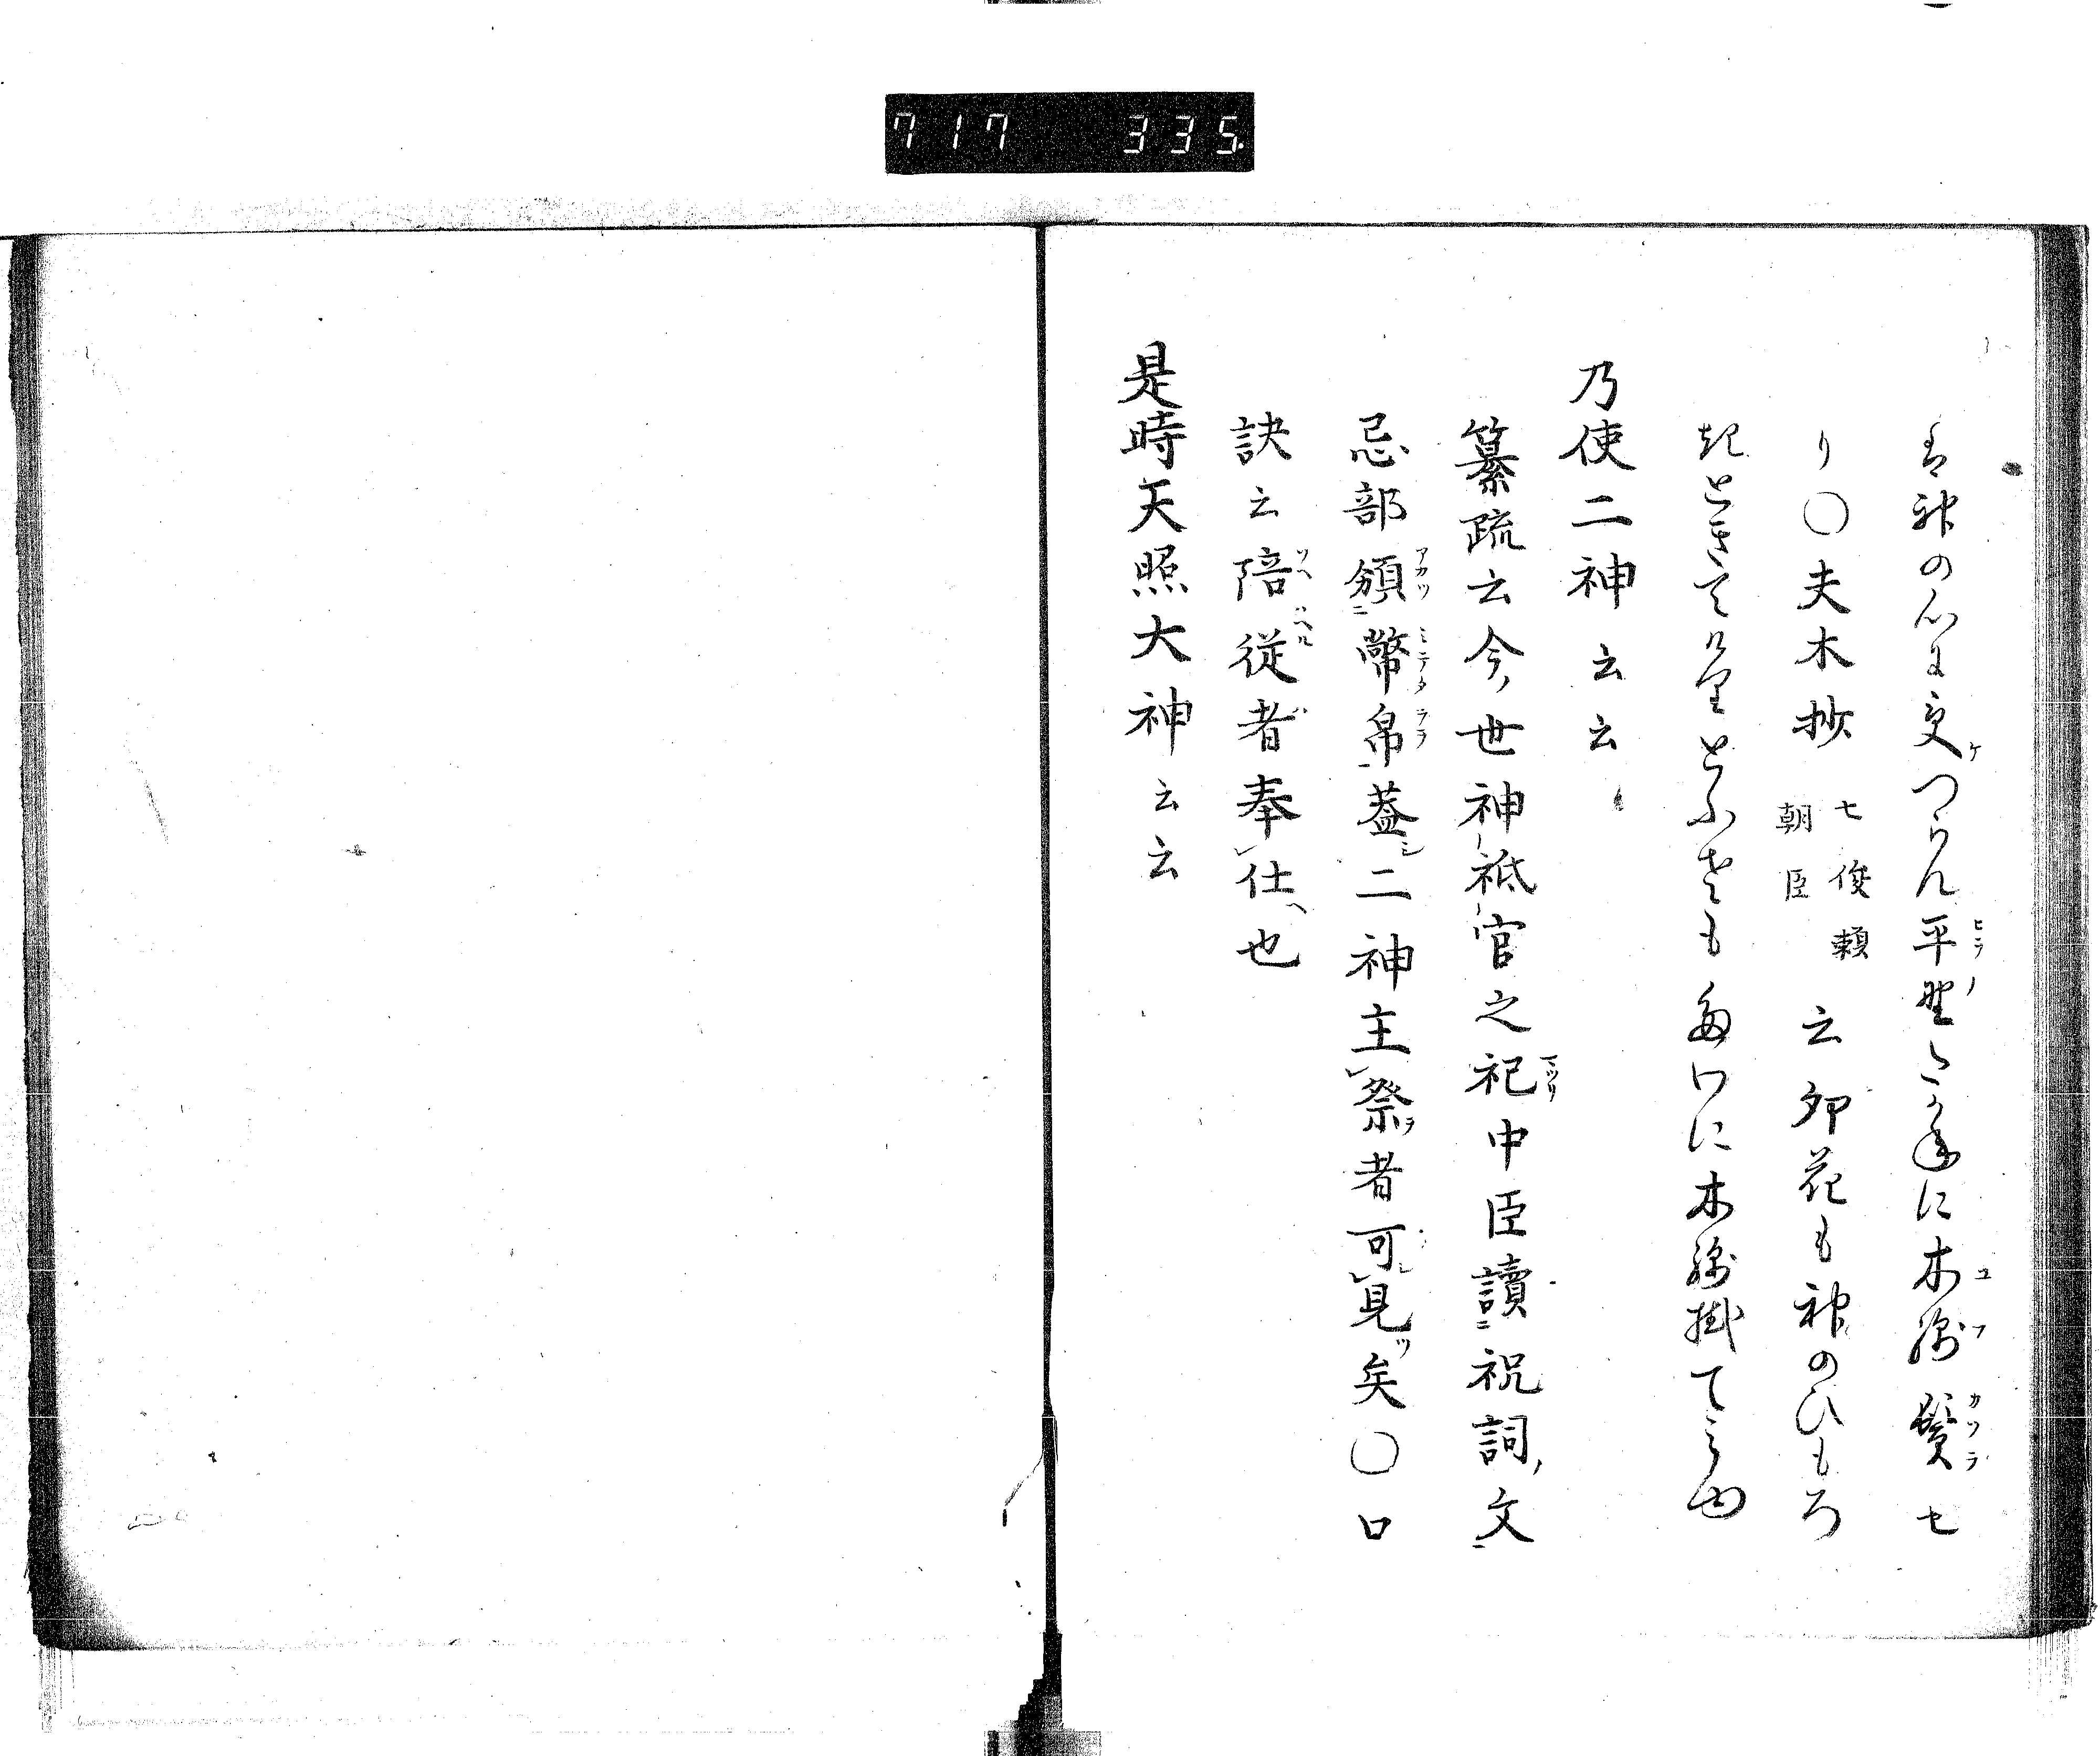 717 335
神の心に受つらん平野たかねに木綿鬘せ
り〇夫木抄七俊頼朝臣云卯花も神のひもろ
きときてけりとふさもたわに木綿掛てみゆ
乃使二神云云
纂疏云今世神祗官之祀中臣讀祝詞文
忌部頒幣帛蓋二神主祭者可見矣〇口
訣云陪従者奉仕也
是時天照大神云云